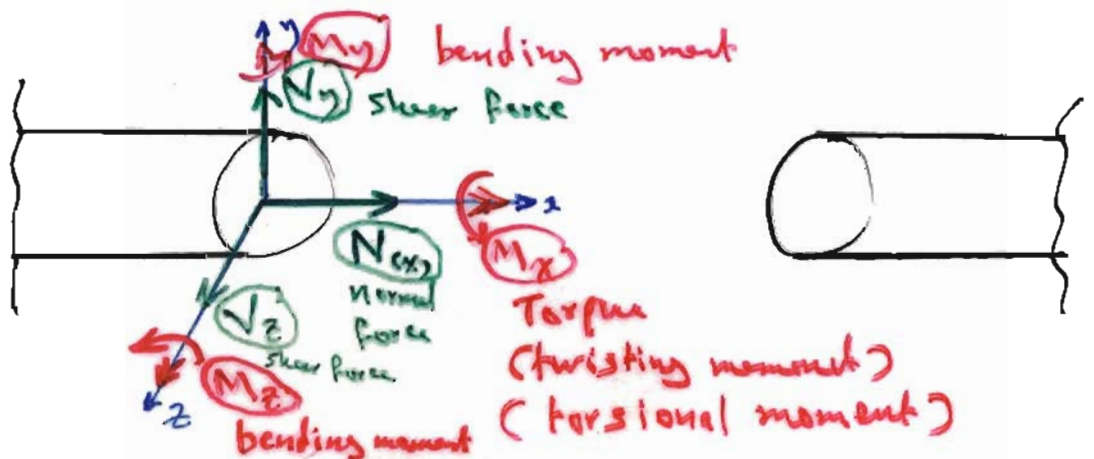 y
My bending moment
Vy shear force
x
N(x)
normal
force
Mx
Torque
(twisting moment)
(torsional moment)
Vz
shear force
Mz
z
bending moment